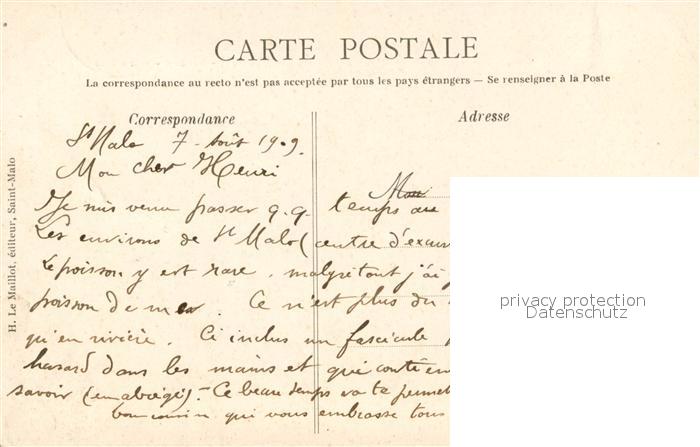 CARTE POSTALE
La correspondance au recto n'est pas acceptée par tous les pays étrangers — Se renseigner à la Poste
Correspondance
Adresse
H. Le Maillot, éditeur, Saint-Malo
St Malo 7 - Août 1909.
Mon cher Henri
Mon
Je suis venu passer q.q. temps au
Les environs de St Malo (centre d'excur
Le poisson y est rare, malgré tout j'ai
poisson de mer. Ce n'est plus du
qu'en rivière. Ci inclus un fascicule
hasard dans les mains et qui contien
savoir (en abrégé). - Ce beau temps va te permet
bon cousin qui vous embrasse tous
privacy protection
Datenschutz